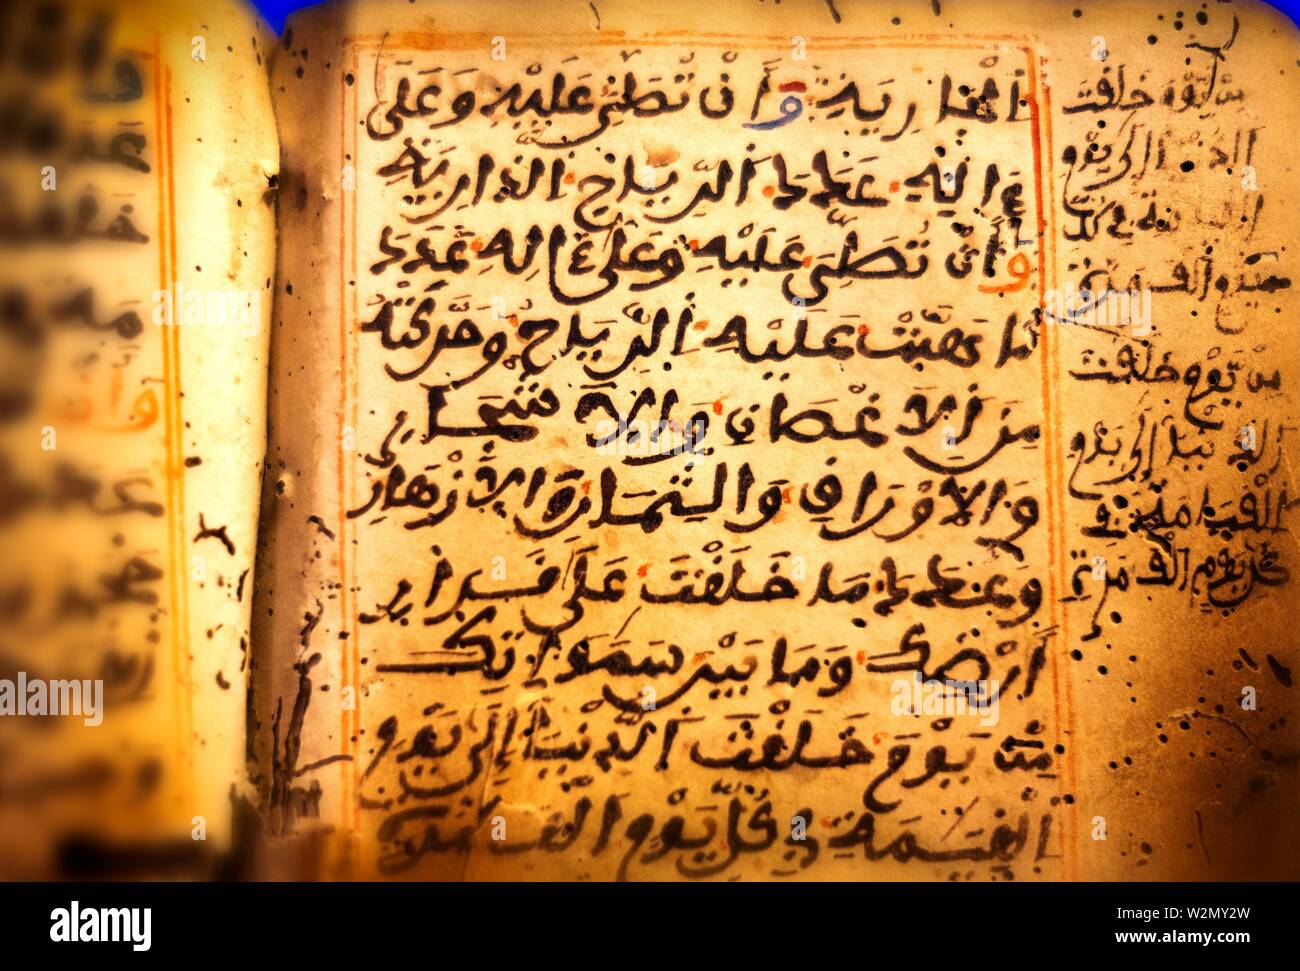 الجارية وَأَنْ تُصَلِّيَ عَلَيْهِ وَعَلَى
ءَالِهِ عَدَدَ الرِّيَاحِ الذارِيَةِ
وَأَنْ تُصَلِّيَ عَلَيْهِ وَعَلَى ءَالِهِ عَدَدَ
مَا هَبَّتْ عَلَيْهِ الرِّيَاحُ وَحَرَّكَتْهُ
مِنَ الاَغْصَانِ وَالاَشْجَارِ
وَالاَوْرَاقِ وَالثِّمَارِ وَالاَزْهَارِ
وَعَدَدَ مَا خَلَقْتَ عَلَى قَرَارِ
أَرْضِكَ وَمَا بَيْنَ سَمَوَاتِكَ
مِنْ يَوْمَ خَلَقْتَ الدُّنْيَا إِلَى يَوْمِ
الْقِيَمَةِ فِي كُلِّ يَوْمٍ أَلْفَ
من يَوْمَ خَلَقْتَ
الدنيا إلى يوم
ألف مرة
من يَوْمَ خلقت
الدنيا إلى يَوْمِ
الْقِيَامَةِ في
كل يوم ألف مرة
alamy
Image ID: W2MY2W
www.alamy.com